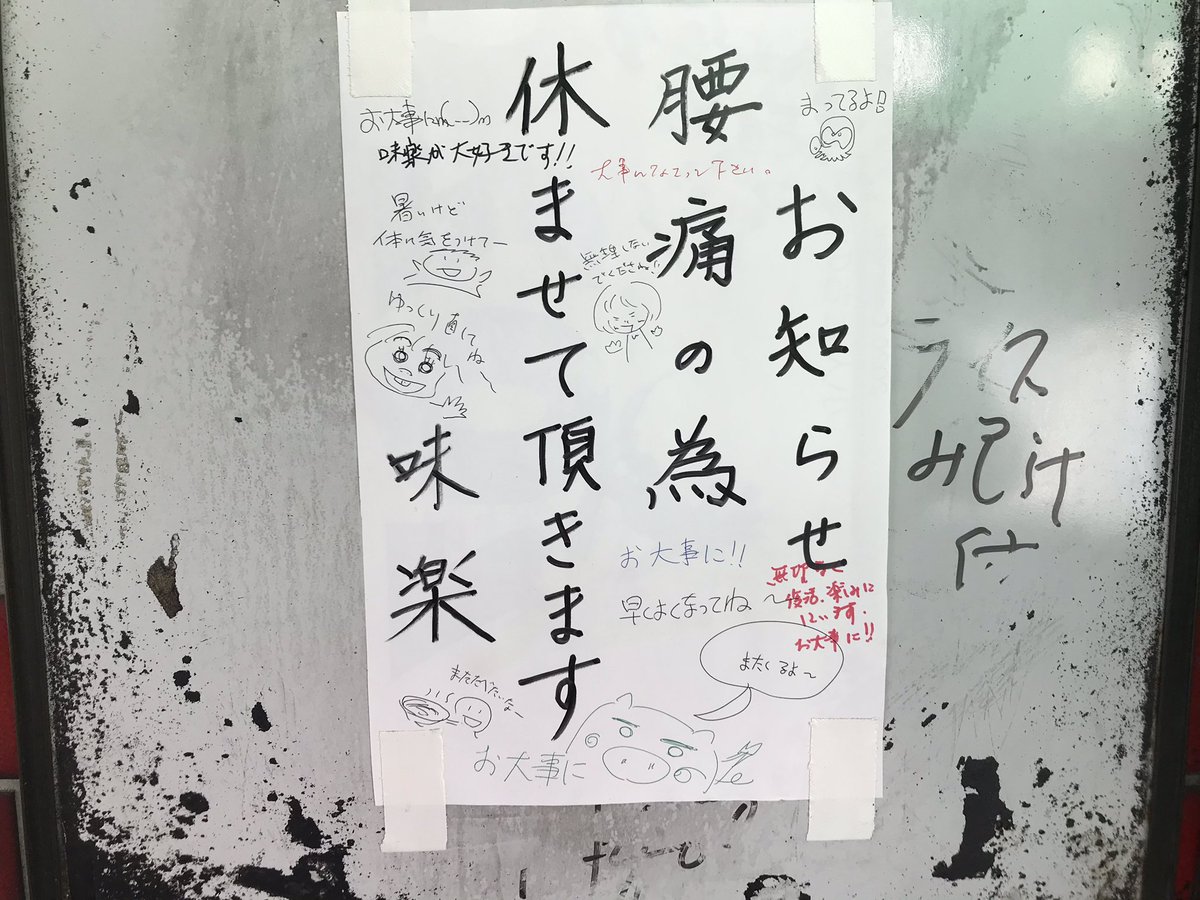 お知らせ
腰痛の為
休ませて頂きます
味楽
まってるよ!!
大事になさって下さい。
お大事にね(--)m
味楽が大好きです!!
暑いけど
体に気をつけてー
無理しない
でくださいね!!
ゆっくり直してね〜
お大事に!!
早くよくなってね〜
復活、楽しみに
しています。
お大事に!!
またくるよ〜
またたべたいなー
お大事に
ライス
みそ汁
付